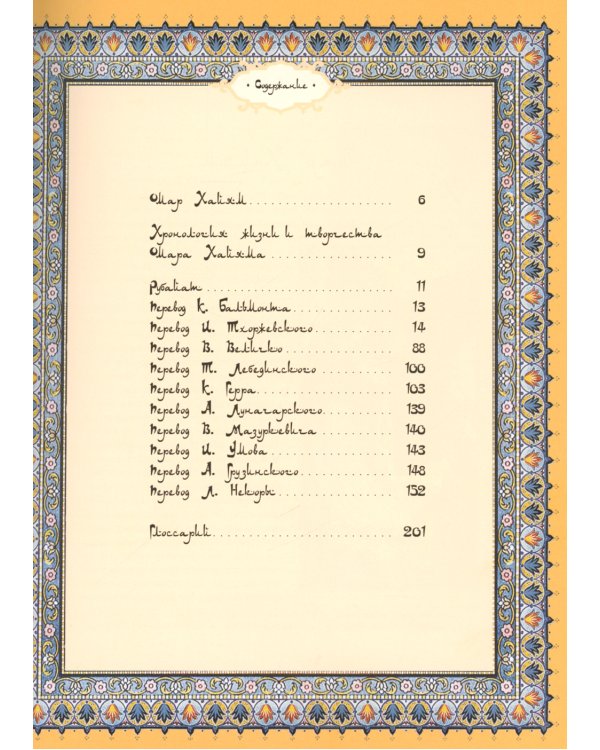 • Содержание •
Омар Хайям . . . . . . . . . . . . . . . . . . . . 6
Хронология жизни и творчества
Омара Хайяма . . . . . . . . . . . . . . . . . . 9
Рубайат . . . . . . . . . . . . . . . . . . . . . . . . . 11
Перевод К. Бальмонта . . . . . . . . . . . . . . 13
Перевод И. Тхоржевского . . . . . . . . . . . 14
Перевод В. Величко . . . . . . . . . . . . . . . 88
Перевод Т. Лебединского . . . . . . . . . . . 100
Перевод К. Герра . . . . . . . . . . . . . . . . . . 103
Перевод А. Луначарского . . . . . . . . . . 139
Перевод В. Мазуркевича . . . . . . . . . . . 140
Перевод И. Умова . . . . . . . . . . . . . . . . . 143
Перевод А. Грузинского . . . . . . . . . . . . 148
Перевод Л. Некоры . . . . . . . . . . . . . . . . 152
Глоссарий . . . . . . . . . . . . . . . . . . . . . . . 201